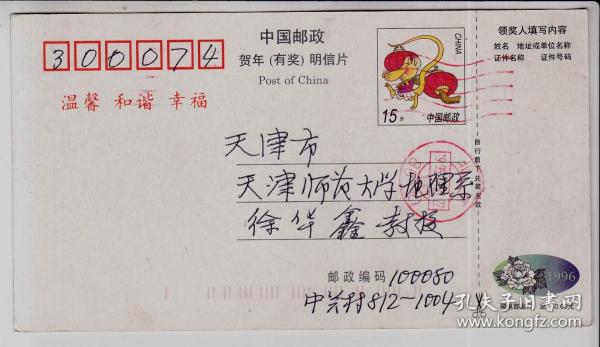 300074
中国邮政
贺年(有奖)明信片
Post of China
温馨 和谐 幸福
CHINA
15分
中国邮政
领奖人填写内容
姓名 地址或单位名称
证件名称 证件号码
自行剪下兑奖无效
天津市
天津师范大学地理系
徐华鑫教授
邮政编码 100080
中关村812-1004
1996
孔夫子旧书网
www.kongfz.com